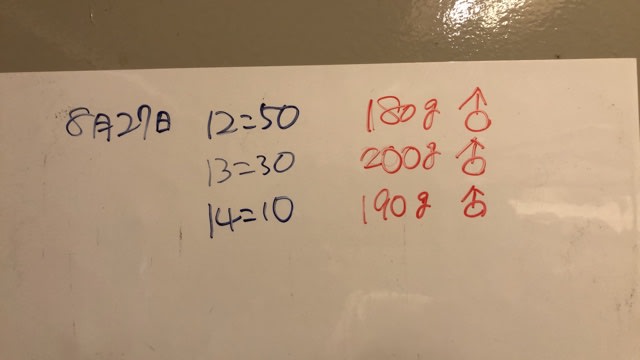 8月27日 12=50 180g ♂
13=30 200g ♂
14=10 190g ♂